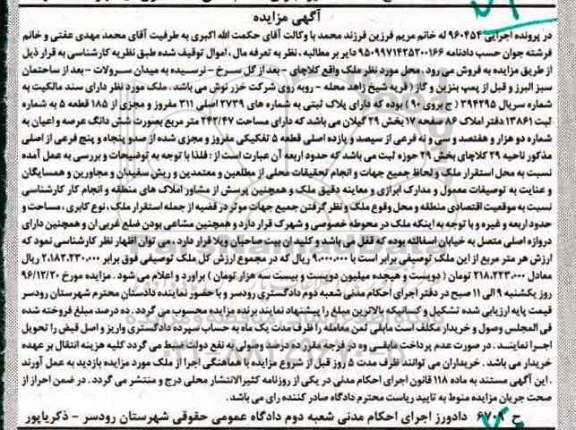 آگهی مزایده
در پرونده اجرایی ۹۶۰۴۵۴ له خانم مریم فرزین فرزند محمد با وکالت آقای حکمت الله اکبری به طرفیت آقای محمد مهدی عفتی و خانم
فرشته جوان حسب دادنامه ۹۵۰۹۹۷۱۴۲۵۲۰۰۱۶۶ دایر بر مطالبه، نظر به تعرفه مال، اموال توقیف شده طبق نظریه کارشناسی به قرار ذیل
از طریق مزایده به فروش می رود، محل مورد نظر ملک واقع کلاچای - بعد از گل سرخ - نرسیده به میدان سرولات - بعد از ساختمان
سبز البرز و قبل از پمپ بنزین و گاز (قریه شیخ زاهد محله - روبه روی شرکت خزر نوش می باشد. ملک مورد نظر دارای سند مالکیت به
شماره سریال ۳۹۴۲۹۵ (ج پروی ۹۰) بوده که دارای پلاک ثبتی به شماره های ۲۷۳۹ اصلی ۳۱۱ مفروز و مجزی از ۱۸۵ قطعه ۵ به شماره
ثبت ۱۳۸۶۱ دفتر املاک ۸۶ صفحه ۱۷ بخش ۲۹ گیلان می باشد که دارای مساحت ۲۴۲/۴۷ متر مربع بصورت شش دانگ عرصه و اعیان به
شماره دو هزار و هفتصد و سی و نه فرعی از سیصد و یازده اصلی قطعه ۵ تفکیکی مفروز و مجزی شده از صد و پنجاه و پنج فرعی از اصلی
مذکور ناحیه ۲۹ کلاچای بخش ۲۹ حوزه ثبت می باشد که حدود اربعه آن عبارت است از: فلذا با توجه به توضیحات و بررسی به عمل آمده
نسبت به محل استقرار ملک و لحاظ جمیع جهات و انجام تحقیقات محلی از مطلعین و معتمدین و ریش سفیدان و مجاورین و همسایگان
و عنایت به توصیفات معمول و مدارک ابرازی و معاینه دقیق ملک و همچنین پرسش از مشاور املاک های منطقه و انجام کار کارشناسی
نسبت به موقعیت اقتصادی منطقه و محل وقوع ملک و نظر گرفتن جمیع جهات موثر در قضیه از جمله استقرار ملک، نوع کابری، مساحت و
حدود اربعه و غیره و با توجه به اینکه ملک در محوطه خصوصی و شهرک قرار دارد و همچنین مشاعی بودن ضلع غربی ان و همچنین دارای
دروازه اصلی متصل به خیابان آسفالته بوده که قفل می باشد و کلید ان بیت صاحبان ویلا قرار دارد، می توان اظهار نظر کارشناسی نمود که
ارزش هر متر مربع از این ملک توصیفی برابر است با ۹.۰۰۰.۰۰۰ ریال که در مجموع ارزش کل ملک توصیفی فوق برابر ۲.۱۸۲.۲۳۰.۰۰۰ ریال
معادل ۲۱۸.۲۲۳.۰۰۰ تومان (دویست و هیجده میلیون دویست و بیست سه هزار تومان) برآورد و اعلام می شود. مزایده مورخ ۹۶/۱۲/۲۰
روز یکشنبه ۹ الی ۱۱ صبح در دفتر اجرای احکام مدنی شعبه دوم دادگستری رودسر و با حضور نماینده دادستان محترم شهرستان رودسر
قیمت پایه ارزیابی شده تشکیل و کسانیکه بالاترین مبلغ را پیشنهاد نمایند برنده مزایده محسوب می گردد. ده درصد مبلغ فروخته شده
فی المجلس وصول و خریدار مکلف است مابقی ثمن معامله را ظرف مدت یک ماه به حساب سپرده دادگستری واریز و اصل فیض را تحویل
اجرا نمایند. در صورت عدم پرداخت مابقی وه در فرجه مقرره ده درصد وصولی به نفع دولت ضبط می گردد کلیه هزینه انتقال بر عهده
خریدار می باشد. خریداران می توانند ظرف مدت ۵ روز قبل از شروع مزایده با هماهنگی اجرا از ملک مورد مزایده بازدید به عمل آورند
. این آگهی مستند به ماده ۱۱۸ قانون اجرای احکام مدنی در یکی از روزنامه کثیرالانتشار محلی درج و منتشر می گردد. در ضمن احراز از
صحت جریان مزایده منوط به تایید ریاست محترم دادگاه صادر کننده رای می باشد.
ح ۶۷۰۹ دادورز اجرای احکام مدنی شعبه دوم دادگاه عمومی حقوقی شهرستان رودسر - ذکریاپور